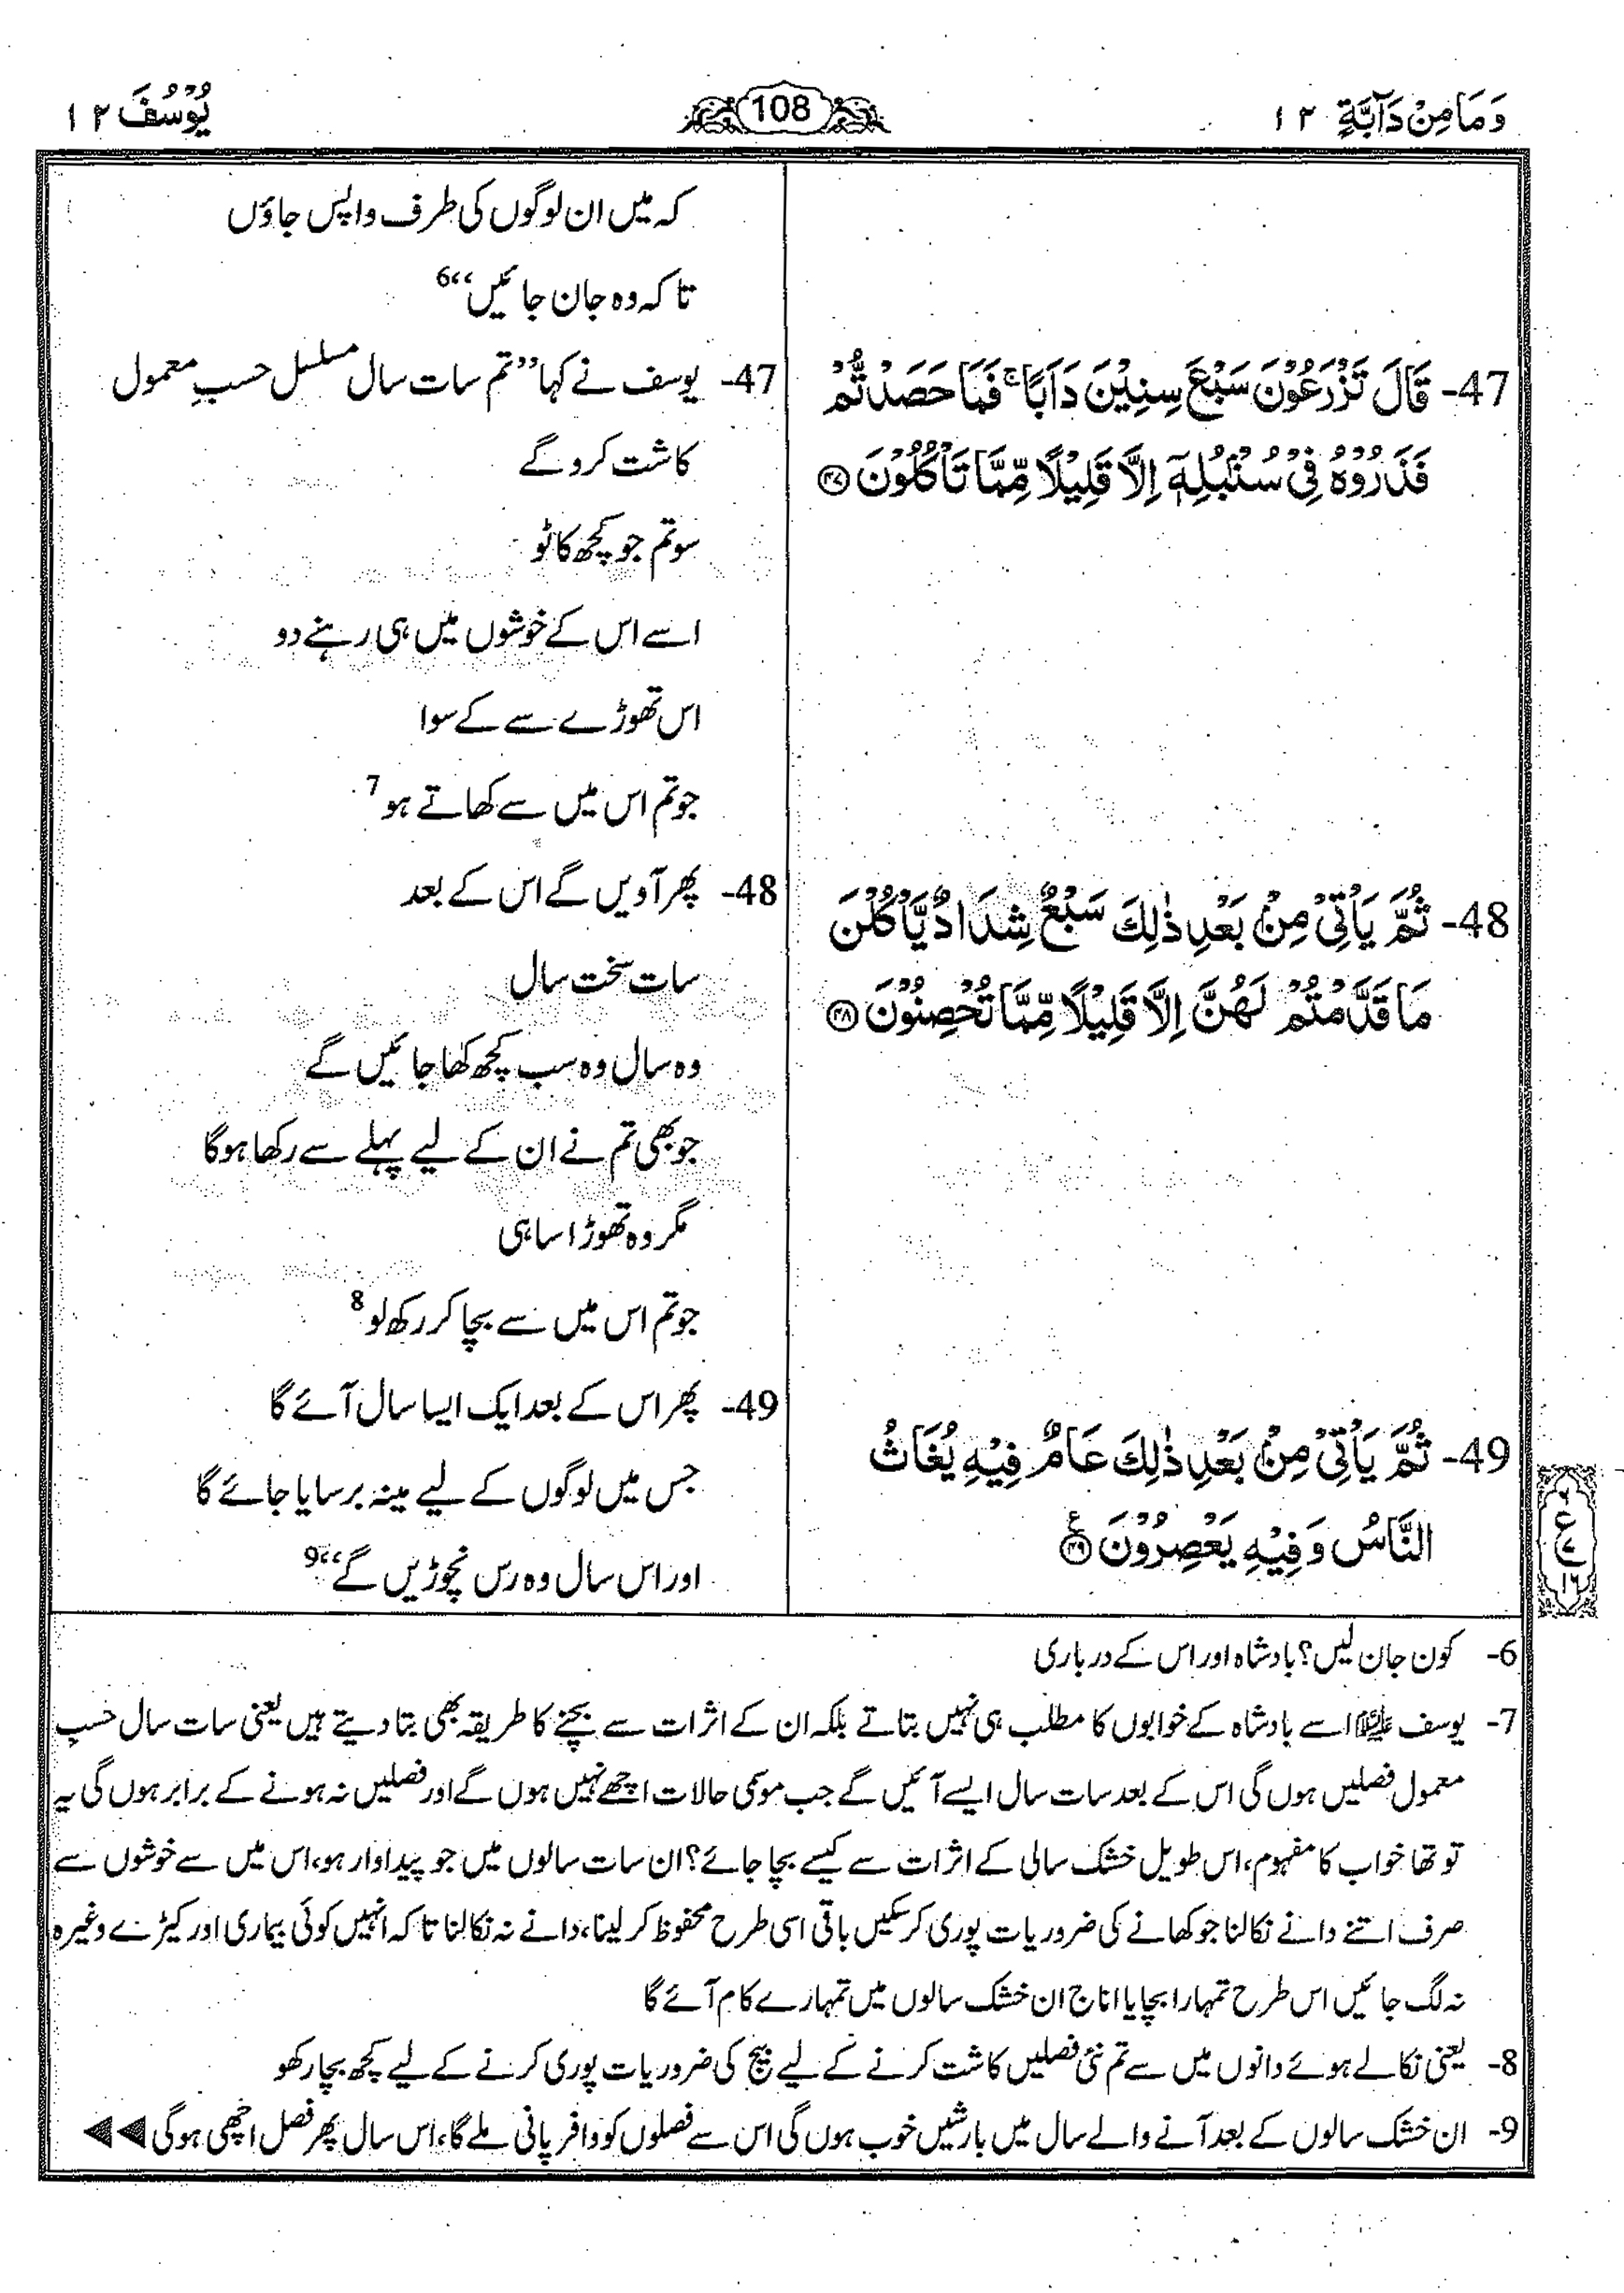 وَمَا مِنْ دَآبَّةٍ ۱۲
108
يُوْسُفَ ۱۲
47- قَالَ تَزْرَعُوْنَ سَبْعَ سِنِيْنَ دَاَبًا ۚ فَمَا حَصَدْتُّمْ
فَذَرُوْهُ فِيْ سُنْۢبُلِهٖٓ اِلَّا قَلِيْلًا مِّمَّا تَاْكُلُوْنَ ﴿۴۷﴾
48- ثُمَّ يَاْتِيْ مِنْۢ بَعْدِ ذٰلِكَ سَبْعٌ شِدَادٌ يَّاْكُلْنَ
مَا قَدَّمْتُمْ لَهُنَّ اِلَّا قَلِيْلًا مِّمَّا تُحْصِنُوْنَ ﴿۴۸﴾
49- ثُمَّ يَاْتِيْ مِنْۢ بَعْدِ ذٰلِكَ عَامٌ فِيْهِ يُغَاثُ
النَّاسُ وَفِيْهِ يَعْصِرُوْنَ ﴿۴۹﴾ ع
کہ میں ان لوگوں کی طرف واپس جاؤں
تاکہ وہ جان جائیں“6
47- یوسف نے کہا ”تم سات سال مسلسل حسبِ معمول
کاشت کرو گے
سو تم جو کچھ کاٹو
اسے اس کے خوشوں میں ہی رہنے دو
اس تھوڑے سے کے سوا
جو تم اس میں سے کھاتے ہو7
48- پھر آویں گے اس کے بعد
سات سخت سال
وہ سال وہ سب کچھ کھا جائیں گے
جو بھی تم نے ان کے لیے پہلے سے رکھا ہوگا
مگر وہ تھوڑا سا ہی
جو تم اس میں سے بچا کر رکھ لو8
49- پھر اس کے بعد ایک ایسا سال آئے گا
جس میں لوگوں کے لیے مینہ برسایا جائے گا
اور اس سال وہ رس نچوڑیں گے“9
۶
ع
۷
۱۶
6- کون جان لیں؟ بادشاہ اور اس کے درباری
7- یوسف علیہ السلام اسے بادشاہ کے خوابوں کا مطلب ہی نہیں بتاتے بلکہ ان کے اثرات سے بچنے کا طریقہ بھی بتا دیتے ہیں یعنی سات سال حسبِ
معمول فصلیں ہوں گی اس کے بعد سات سال ایسے آئیں گے جب موسمی حالات اچھے نہیں ہوں گے اور فصلیں نہ ہونے کے برابر ہوں گی یہ
تو تھا خواب کا مفہوم، اس طویل خشک سالی کے اثرات سے کیسے بچا جائے؟ ان سات سالوں میں جو پیداوار ہو، اس میں سے خوشوں سے
صرف اتنے دانے نکالنا جو کھانے کی ضروریات پوری کر سکیں باقی اسی طرح محفوظ کر لینا، دانے نہ نکالنا تاکہ انہیں کوئی بیماری اور کیڑے وغیرہ
نہ لگ جائیں اس طرح تمہارا بچایا اناج ان خشک سالوں میں تمہارے کام آئے گا
8- یعنی نکالے ہوئے دانوں میں سے تم نئی فصلیں کاشت کرنے کے لیے بیج کی ضروریات پوری کرنے کے لیے کچھ بچا رکھو
9- ان خشک سالوں کے بعد آنے والے سال میں بارشیں خوب ہوں گی اس سے فصلوں کو وافر پانی ملے گا، اس سال پھر فصل اچھی ہوگی ◄◄